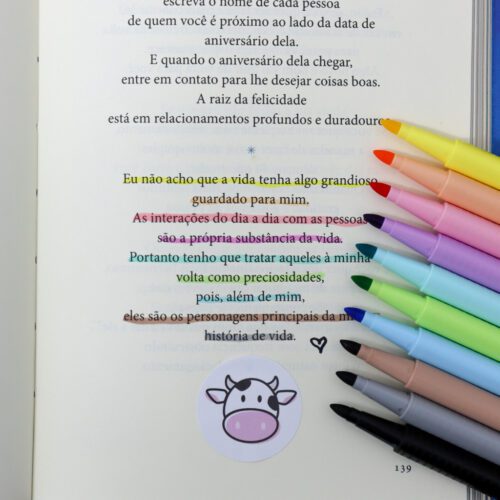 escreva o nome de cada pessoa
de quem você é próximo ao lado da data de
aniversário dela.
E quando o aniversário dela chegar,
entre em contato para lhe desejar coisas boas.
A raiz da felicidade
está em relacionamentos profundos e duradouros
Eu não acho que a vida tenha algo grandioso
guardado para mim.
As interações do dia a dia com as pessoas
são a própria substância da vida.
Portanto tenho que tratar aqueles à minha
volta como preciosidades,
pois, além de mim,
eles são os personagens principais da
história de vida.
139